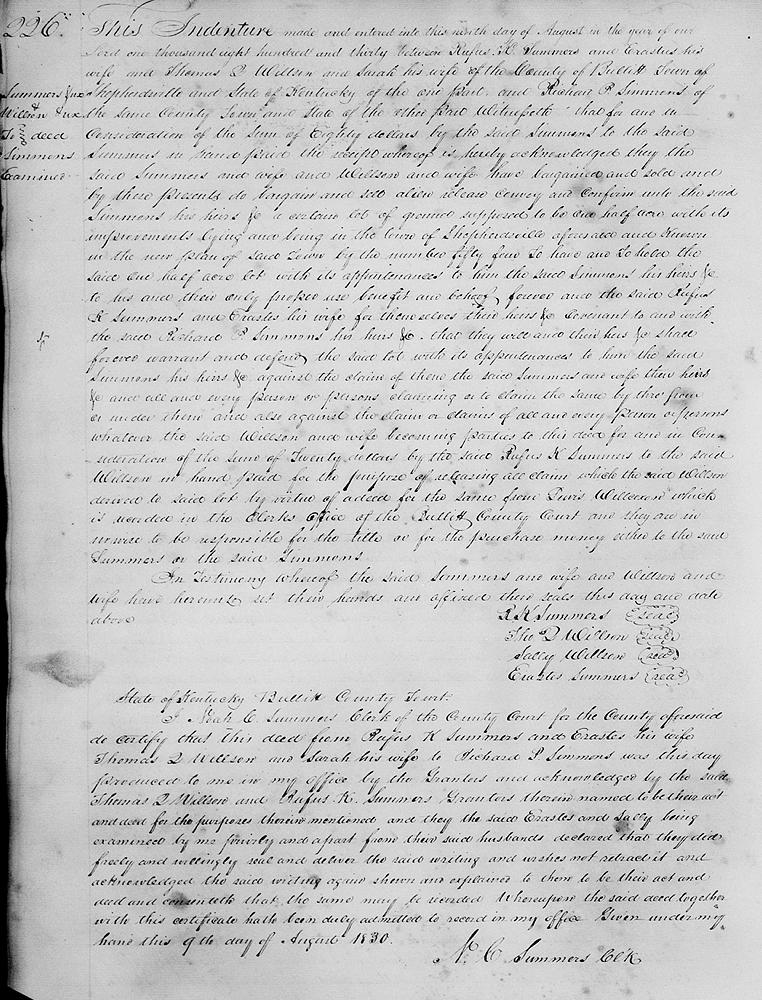 226.
Summers & ux
Willson & ux
To } deed
Simmons
Examined
This Indenture made and entered into this ninth day of August in the year of our
Lord one thousand eight hundred and thirty between Rufus K. Summers and Erastes his
wife and Thomas Q Willson and Sarah his wife of the County of Bullitt Town of
Shepherdsville and State of Kentucky of the one part and Richard P. Simmons of
the same County Town and State of the other part Witnesseth that for and in
Consideration of the Sum of Eighty dollars by the said Simmons to the said
Summers in hand paid the receipt whereof is hereby acknowledged they the
said Summers and wife and Willson and wife have bargained and sold and
by these presents do bargain and sell alien release convey and confirm unto the said
Simmons his heirs &c a certain lot of ground supposed to be one half acre with its
improvements lying and being in the town of Shepherdsville aforesaid and Known
in the new plan of said Town by the number fifty four To have and To hold the
said one half acre lot with its appurtenances to him the said Simmons his heirs &c
to his and their only proper use benefit and behoof forever and the said Rufus
K Summers and Erastes his wife for themselves their heirs &c Covenant to and with
the said Richard P. Simmons his heirs &c. that they will and their heirs &c shall
forever warrant and defend the said lot with its appurtenances to him the said
Simmons his heirs &c against the claim of them the said Summers and wife their heirs
&c and all and every person or persons claiming or to claim the same by thro' from
or under them and also against the claim or claims of all and every person or persons
whatever the said Willson and wife becoming parties to this deed for and in Con-
-sideration of the sum of Twenty dollars by the said Rufus K Summers to the said
Willson in hand paid for the purpose of releasing all claim which the said Willson
derived to said lot by virtue of a deed for the same from Lewis Wilcoxon which
is recorded in the Clerks office of the Bullitt County Court and they are in
nowise to be responsible for the title or for the purchase money either to the said
Summers or the said Simmons
In Testimony whereof the said Summers and wife and Willson and
wife have hereunto set their hands and affixed their seals this day and date
above
R K Summers (seal)
Thos Q Willson (seal)
Sally Willson (seal)
Erastes Summers (seal)
State of Kentucky Bullitt County Court
I Noah C. Summers Clerk of the County Court for the County aforesaid
do certify that this deed from Rufus K Summers and Erastes his wife
Thomas Q Willson and Sarah his wife to Richard P. Simmons was this day
produced to me in my office by the Grantors and acknowledged by the said
Thomas Q Willson and Rufus K. Summers Grantors therein named to be their act
and deed for the purposes therein mentioned and they the said Erastes and Sally being
examined by me privily and apart from their said husbands declared that they did
freely and willingly seal and deliver the said writing and wishes not retract it and
acknowledged the said writing again shown and explained to them to be their act and
deed and consenteth that the same may be recorded Whereupon the said deed together
with this certificate hath been duly admitted to record in my office Given under my
hand this 9th day of August 1830.
N. C Summers Clk